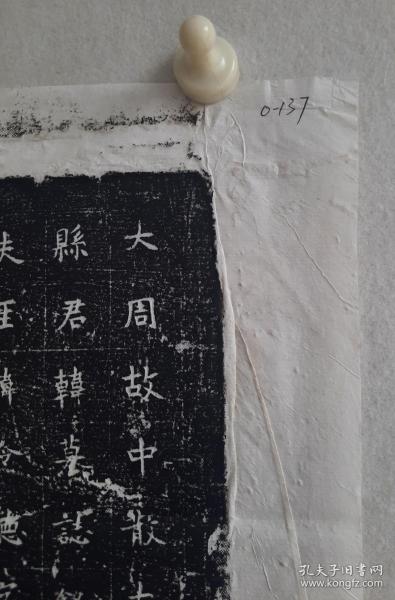 0-137
大周故中散大
縣君韓墓誌
夫
韓令德
孔夫子旧书网
www.kongfz.com